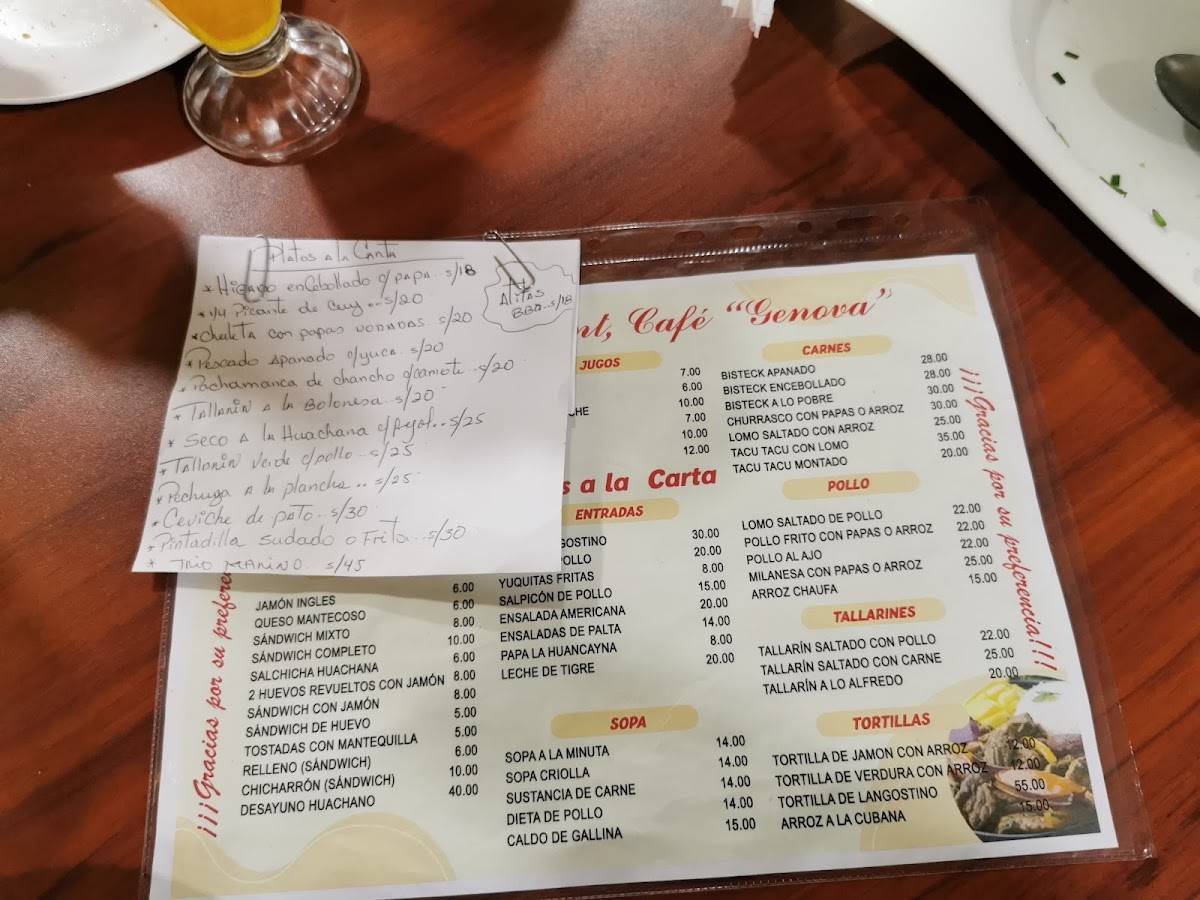 Platos a la Carta
* Higado enCebollado c/papa.. s/18
* 1/4 Picante de Cuy... s/20
* chuleta con papas DORADAS. s/20
* Pescado Apanado c/yuca. s/20
* Pachamanca de chancho c/camote. s/20
* Tallarin a la Bolonesa. s/20
* Seco a la Huachana c/frejol.. s/25
* Tallarin Verde c/pollo.. s/25
* Pechuga a la plancha .. s/25
* Ceviche de pato.. s/30
* Pintadilla sudado o Frita...s/30
* TRIO MARINO. s/45
Alitas
BBQ..s/18
nt, Café “Genova”
JUGOS
7.00
6.00
CHE 10.00
7.00
10.00
12.00
s a la Carta
ENTRADAS
GOSTINO 30.00
POLLO 20.00
YUQUITAS FRITAS 8.00
SALPICÓN DE POLLO 15.00
ENSALADA AMERICANA 20.00
ENSALADAS DE PALTA 14.00
PAPA LA HUANCAYNA 8.00
LECHE DE TIGRE 20.00
SOPA
SOPA A LA MINUTA 14.00
SOPA CRIOLLA 14.00
SUSTANCIA DE CARNE 14.00
DIETA DE POLLO 14.00
CALDO DE GALLINA 15.00
CARNES
BISTECK APANADO 28.00
BISTECK ENCEBOLLADO 28.00
BISTECK A LO POBRE 30.00
CHURRASCO CON PAPAS O ARROZ 30.00
LOMO SALTADO CON ARROZ 25.00
TACU TACU CON LOMO 35.00
TACU TACU MONTADO 20.00
POLLO
LOMO SALTADO DE POLLO 22.00
POLLO FRITO CON PAPAS O ARROZ 22.00
POLLO AL AJO 22.00
MILANESA CON PAPAS O ARROZ 25.00
ARROZ CHAUFA 15.00
TALLARINES
TALLARÍN SALTADO CON POLLO 22.00
TALLARÍN SALTADO CON CARNE 25.00
TALLARÍN A LO ALFREDO 20.00
TORTILLAS
TORTILLA DE JAMON CON ARROZ 12.00
TORTILLA DE VERDURA CON ARROZ 12.00
TORTILLA DE LANGOSTINO 55.00
ARROZ A LA CUBANA 15.00
JAMÓN INGLES 6.00
QUESO MANTECOSO 6.00
SÁNDWICH MIXTO 8.00
SÁNDWICH COMPLETO 10.00
SALCHICHA HUACHANA 6.00
2 HUEVOS REVUELTOS CON JAMÓN 8.00
SÁNDWICH CON JAMÓN 8.00
SÁNDWICH DE HUEVO 5.00
TOSTADAS CON MANTEQUILLA 5.00
RELLENO (SÁNDWICH) 6.00
CHICHARRÓN (SÁNDWICH) 10.00
DESAYUNO HUACHANO 40.00
¡¡¡Gracias por su prefere
¡¡¡Gracias por su preferencia!!!